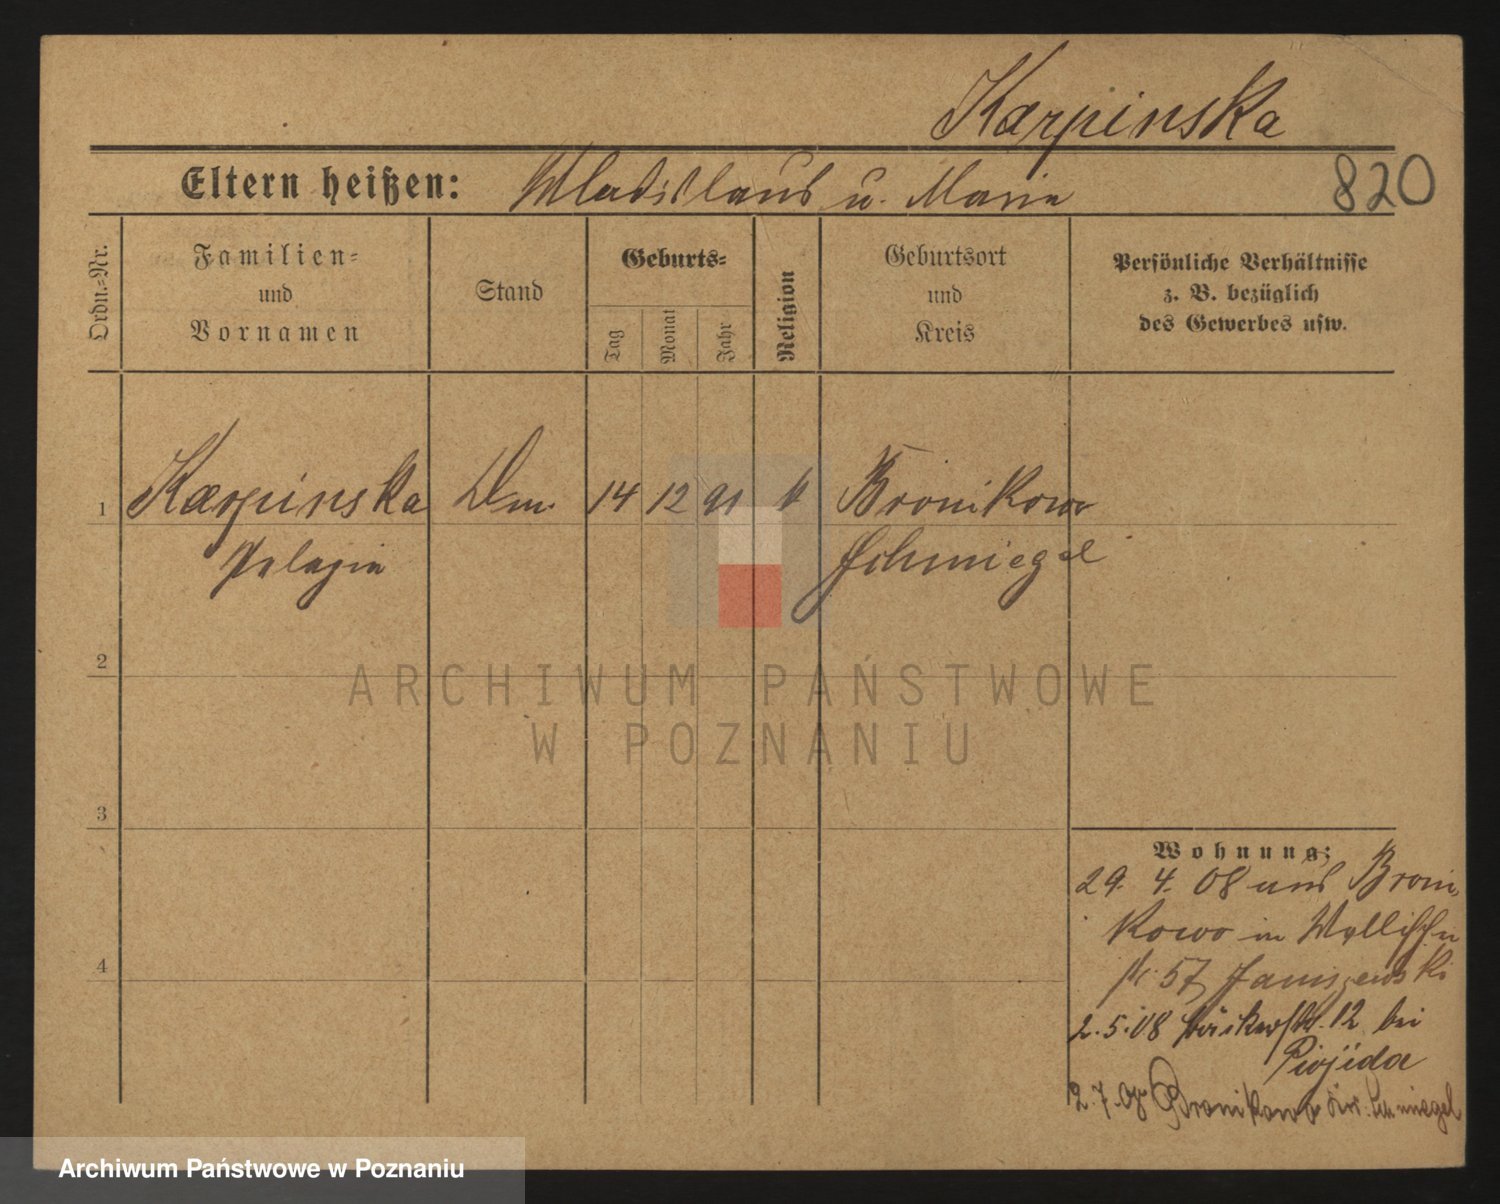 Karpinska
Eltern heißen: Wladislaus u. Maria
820
Ordn.-Nr.
Familien-
und
Vornamen
Stand
Geburts-
Tag
Monat
Jahr
Religion
Geburtsort
und
Kreis
Persönliche Verhältnisse
z. B. bezüglich
des Gewerbes usw.
1 Karpinska Dm. 14 12 91 k Bronikowo
Pelagia Schmiegel
2
ARCHIWUM PAŃSTWOWE
W POZNANIU
3
Wohnung:
29. 4. 08 aus Broni-
kowo in
4
57 Janiszewski
2.5.08 12 bei
2.7.08 Bronikowo Kr. Schmiegel
Archiwum Państwowe w Poznaniu